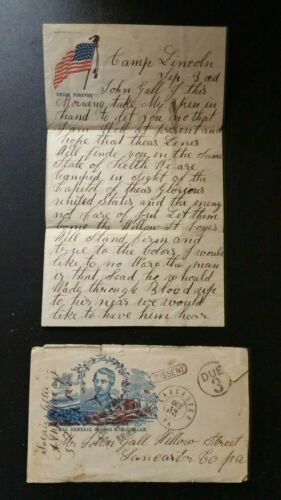 Camp Lincoln
Sep, 3rd
UNION FOREVER
John Gall I this
Morning take My pen in
hand to let you no that
I am Well at present and
hope that theas Lines
Will finde you in the Same
State of helth We are
Camped in Sight of the
Capitol of theas Glorious
united States and the enemy
not fare of but Let them
come the Willow St boyes
Will Stand ferm and
true to the Colors I would
like to no Ware the man
is that Sead he would
Wade through Blood up
to his near we would
like to have him hear
MISSENT
DUE
3
LANCASTER
PA
MAJ. GENERAL GEORGE
Mr John Gall Willow Street
Lancaster Co pa